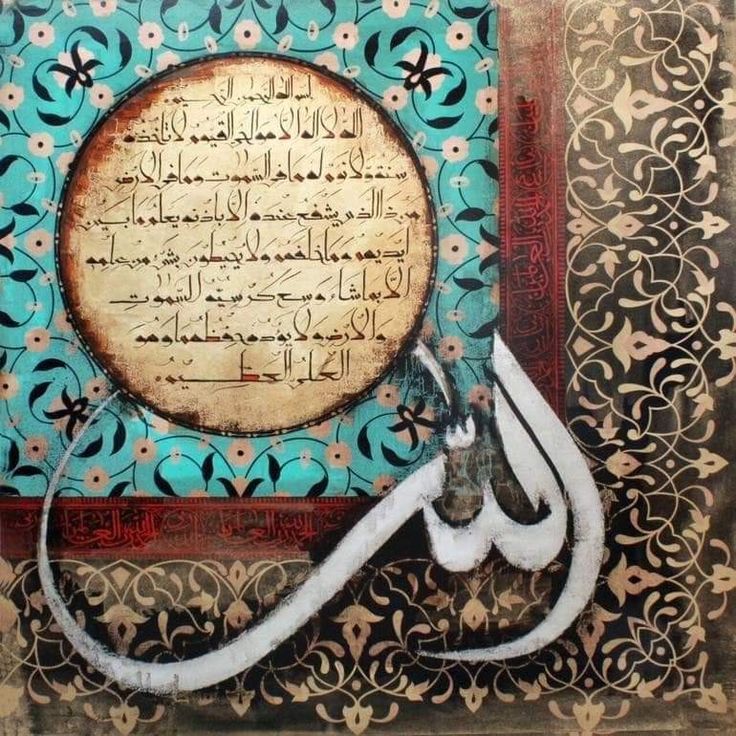 بسم الله الرحمن الرحيم
الله لا اله الا هو الحي القيوم لا تاخذه
سنة ولا نوم له ما في السموت وما في الارض
من ذا الذي يشفع عنده الا باذنه يعلم ما بين
ايديهم وما خلفهم ولا يحيطون بشي من علمه
الا بما شاء وسع كرسيه السموت
والارض ولا يوده حفظهما وهو
العلي العظيم
الله